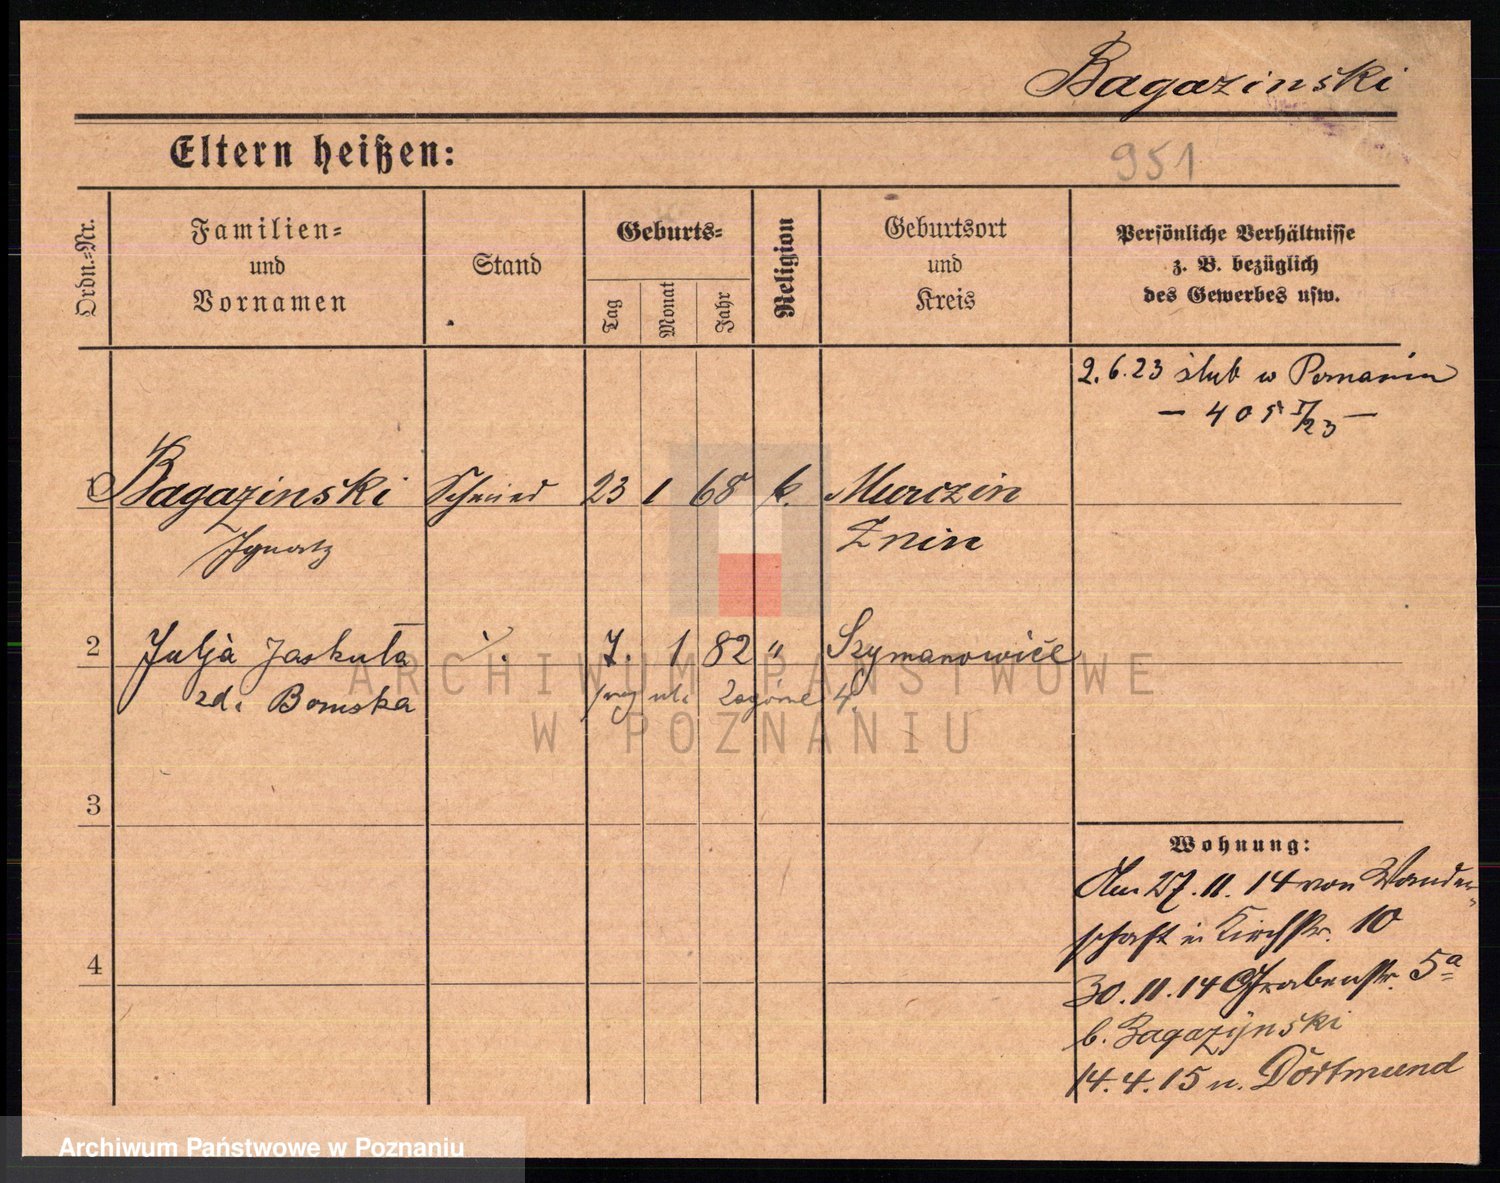 Bagazinski
Eltern heißen:
951
Ordn.-Nr.
Familien-
und
Vornamen
Stand
Geburts-
Tag
Monat
Jahr
Religion
Geburtsort
und
Kreis
Persönliche Verhältnisse
z. B. bezüglich
des Gewerbes usw.
2.6.23 ślub w Poznaniu
— 405 I/23 —
1 Bagazinski Schmied 23 1 68 k. Murczin
Ignatz Znin
2 Julja Jaskuła 7. 1 82 " Szymanowice
zd. Bomska ul. Zagórze 4.
3
4
Wohnung:
Am 27.11.14 von Wander-
schaft in Kirchstr. 10
30.11.14 Grabenstr. 5a
b. Bagazynski
14.4.15 n. Dortmund
ARCHIWUM PAŃSTWOWE
W POZNANIU
Archiwum Państwowe w Poznaniu